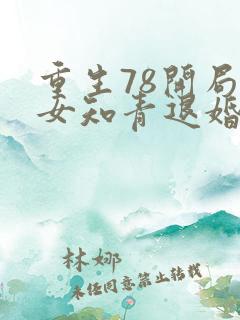 重生78开局
女知青退婚
林娜
未经同意禁止转载